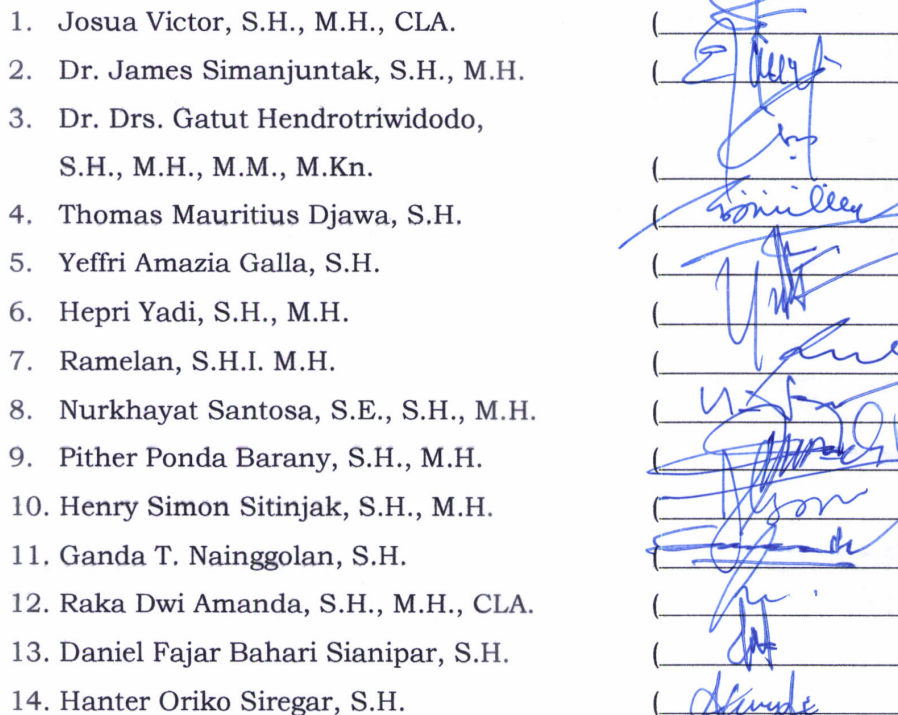 1. Josua Victor, S.H., M.H., CLA. (
2. Dr. James Simanjuntak, S.H., M.H. (
3. Dr. Drs. Gatut Hendrotriwidodo,
S.H., M.H., M.M., M.Kn. (
4. Thomas Mauritius Djawa, S.H. (
5. Yeffri Amazia Galla, S.H. (
6. Hepri Yadi, S.H., M.H. (
7. Ramelan, S.H.I. M.H. (
8. Nurkhayat Santosa, S.E., S.H., M.H. (
9. Pither Ponda Barany, S.H., M.H. (
10. Henry Simon Sitinjak, S.H., M.H. (
11. Ganda T. Nainggolan, S.H. (
12. Raka Dwi Amanda, S.H., M.H., CLA. (
13. Daniel Fajar Bahari Sianipar, S.H. (
14. Hanter Oriko Siregar, S.H. (